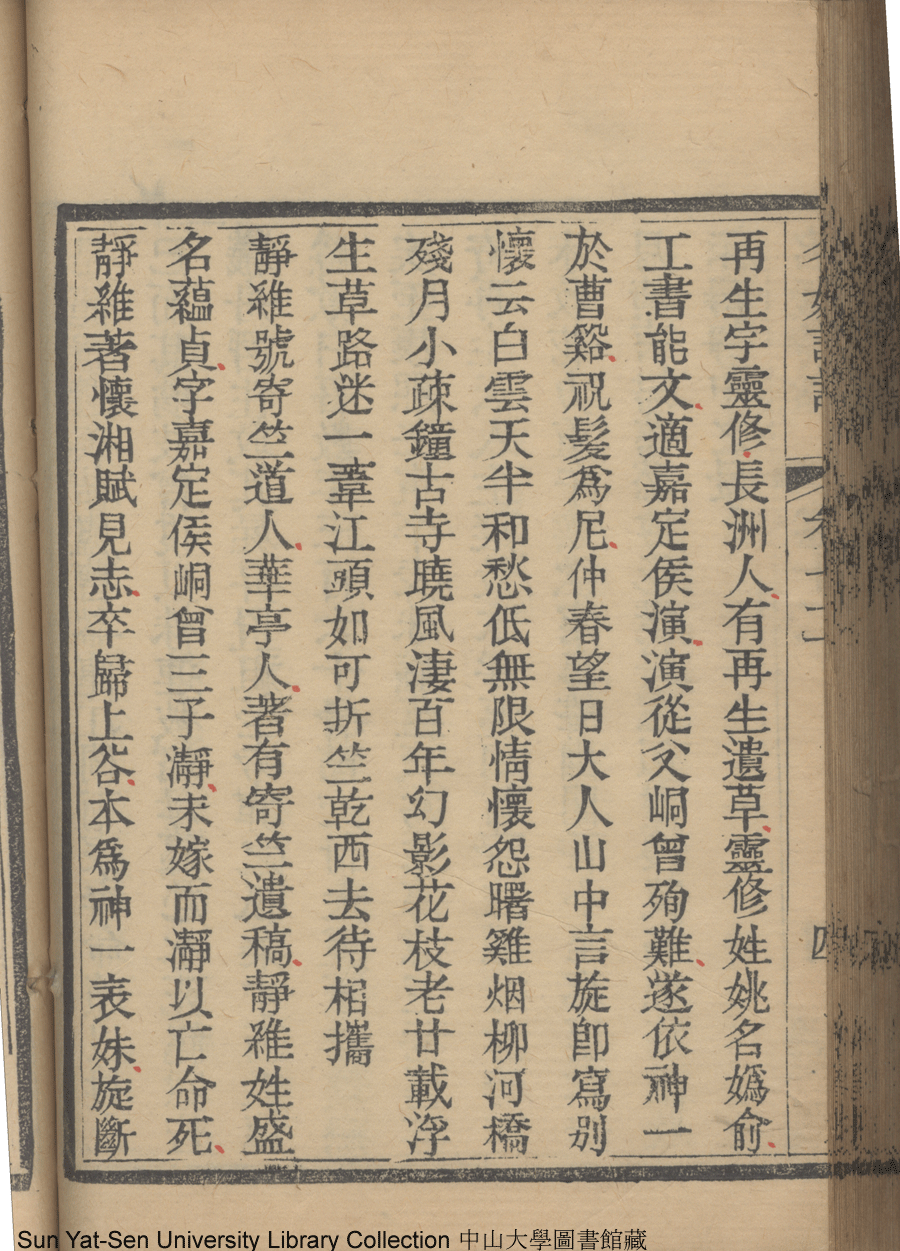 再生字靈修長洲人有再生遺草靈修姓姚名嬀俞
工書能文適嘉定侯演演從父峒曾殉難遂依神一
於曹谿祝髮爲尼仲春望日大人山中言旋卽寫别
懷云白雲天半和愁低無限情懷怨曙雞烟柳河橋
殘月小疎鐘古寺曉風淒百年幻影花枝老廿載浮
生草路迷一葦江頭如可折竺乾西去待相攜
靜維號寄竺道人華亭人著有寄竺遺稿靜維姓盛
名蘊貞字嘉定侯峒曾三子瀞未嫁而瀞以亡命死
靜維著懷湘賦見志卒歸上谷本爲神一表妹旋斷
Sun Yat-Sen University Library Collection 中山大學圖書館藏